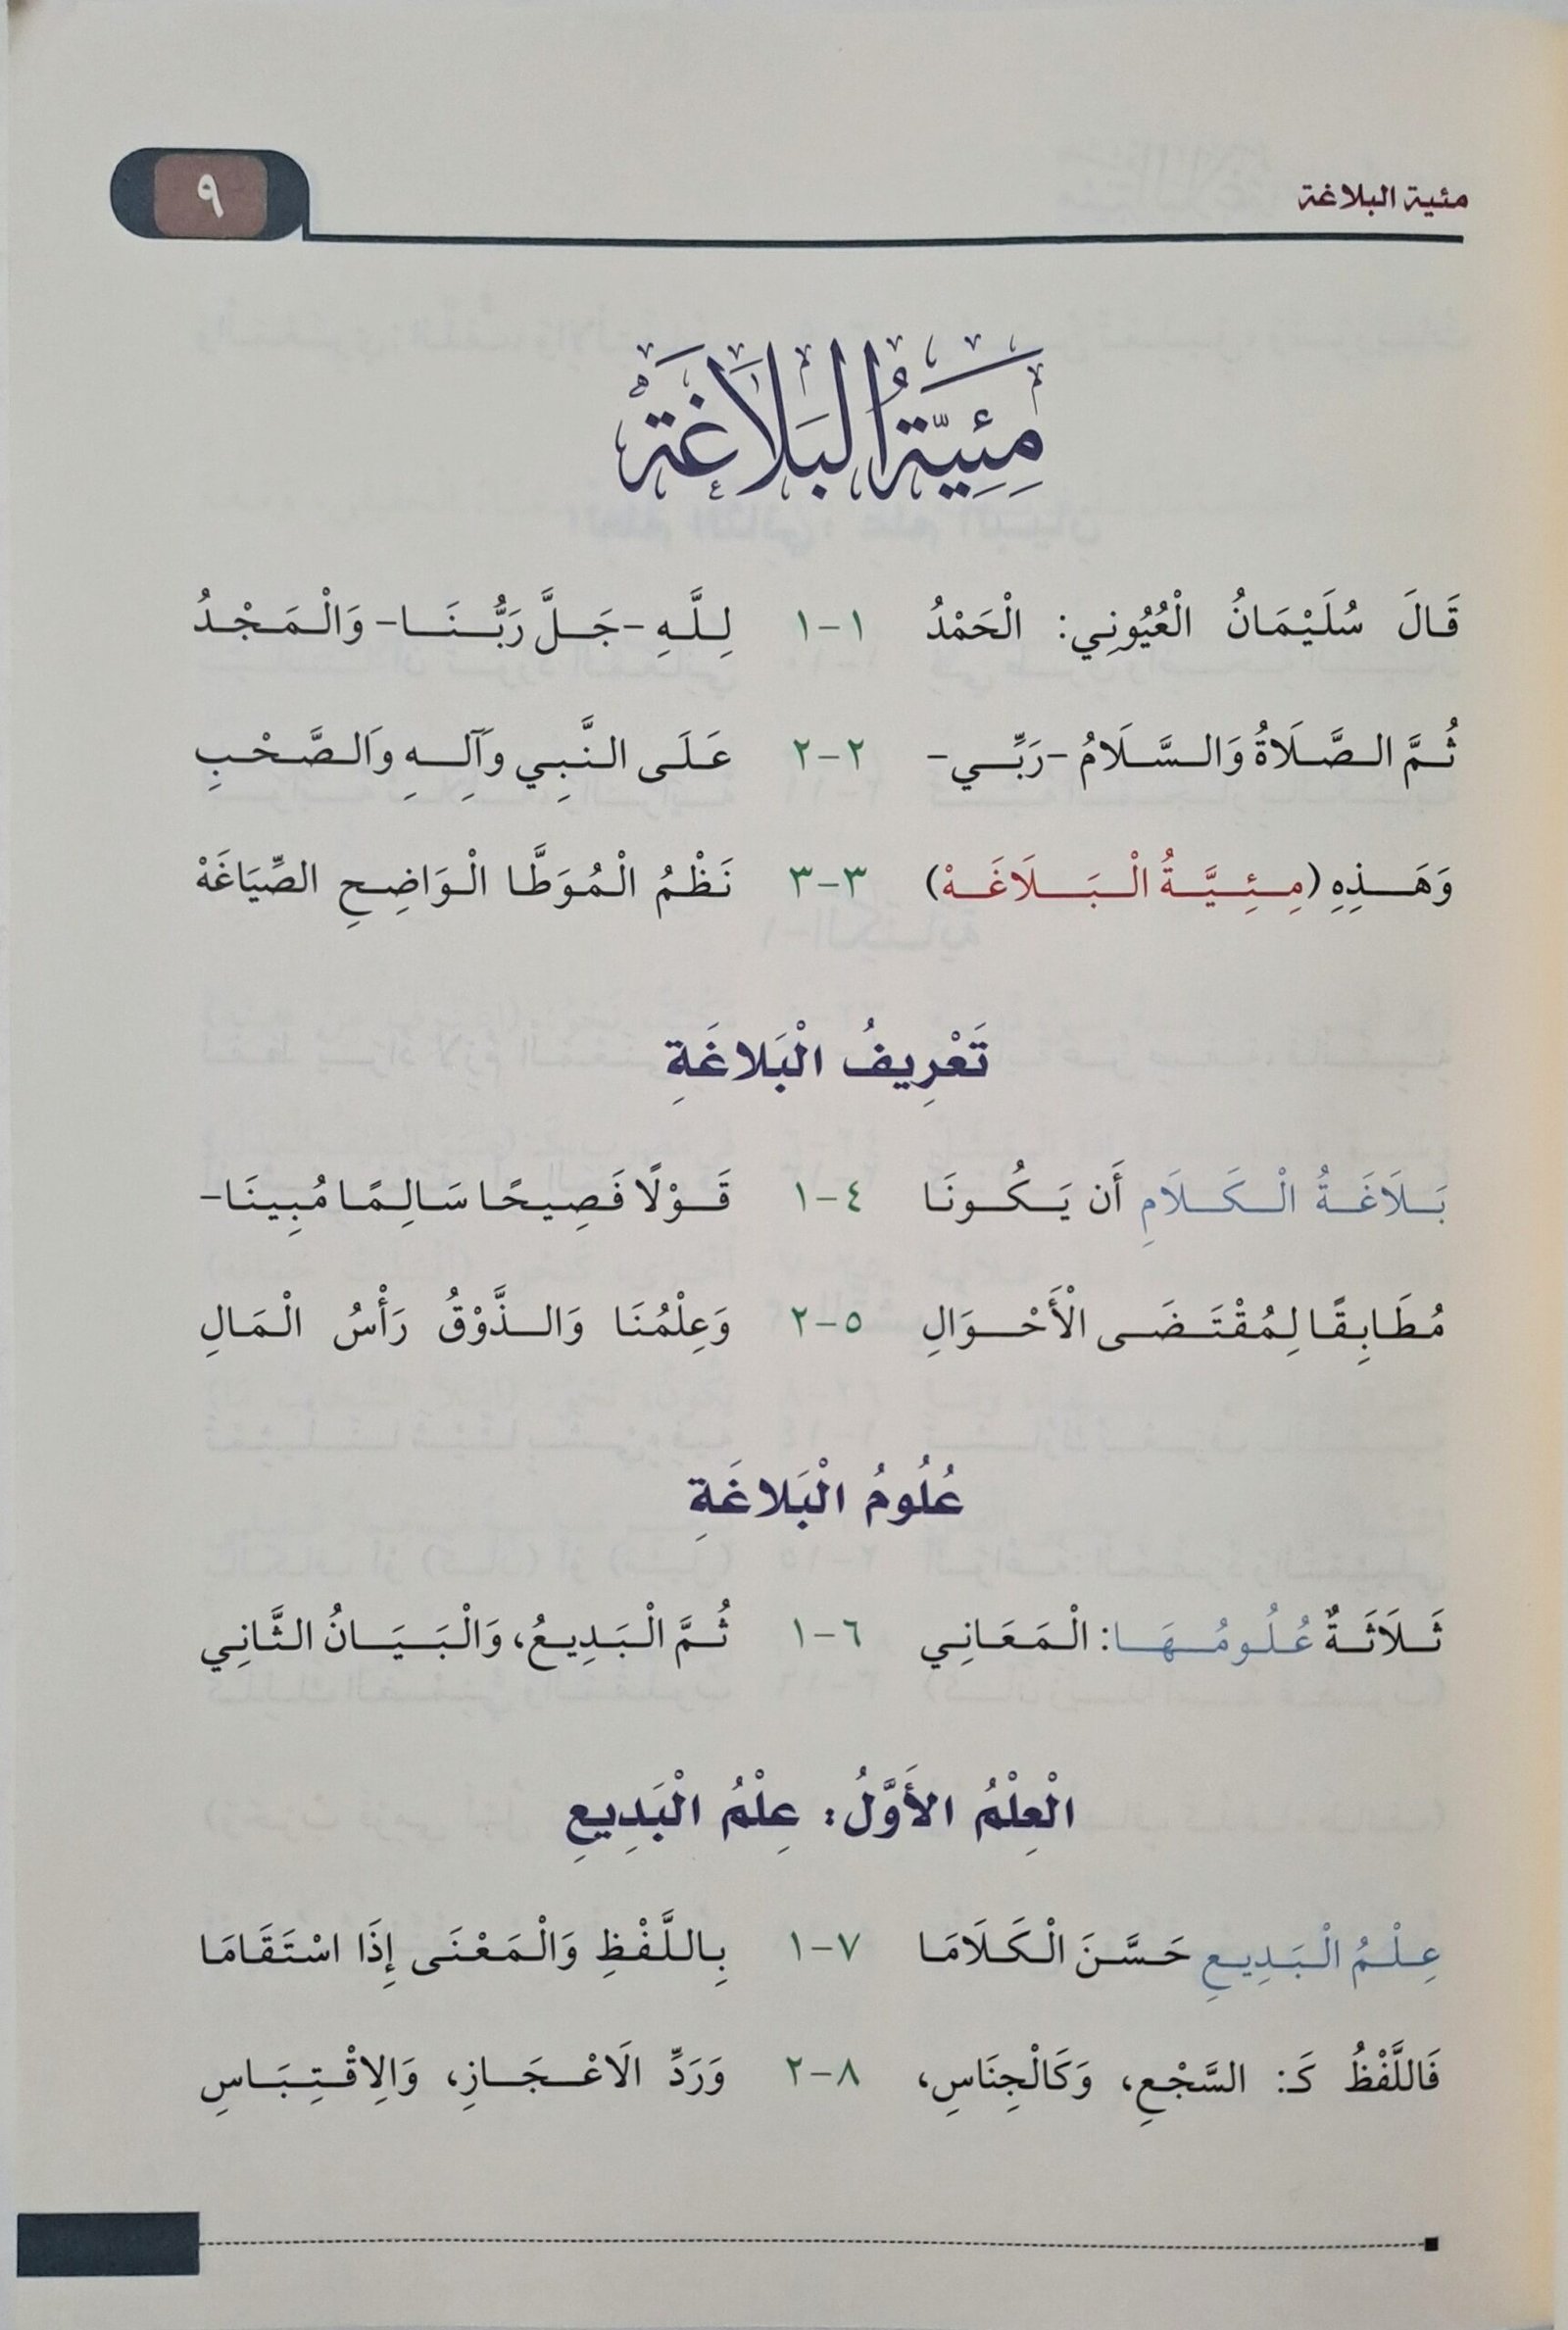 مئية البلاغة
٩
مِئِيَّةُ الْبَلَاغَةْ
قَالَ سُلَيْمَانُ الْعُيُونِي: الْحَمْدُ ١-١ لِلَّهِ -جَلَّ رَبُّنَا- وَالْمَجْدُ
ثُمَّ الصَّلَاةُ وَالسَّلَامُ -رَبِّي- ٢-٢ عَلَى النَّبِي وَآلِهِ وَالصَّحْبِ
وَهَذِهِ (مِئِيَّةُ الْبَلَاغَهْ) ٣-٣ نَظْمُ الْمُوَطَّا الْوَاضِحِ الصِّيَاغَهْ
تَعْرِيفُ الْبَلاغَةِ
بَلَاغَةُ الْكَلَامِ أَن يَكُونَا ٤-١ قَوْلًا فَصِيحًا سَالِمًا مُبِينَا-
مُطَابِقًا لِمُقْتَضَى الْأَحْوَالِ ٥-٢ وَعِلْمُنَا وَالذَّوْقُ رَأْسُ الْمَالِ
عُلُومُ الْبَلاغَةِ
ثَلَاثَةٌ عُلُومُهَا: الْمَعَانِي ٦-١ ثُمَّ الْبَدِيعُ، وَالْبَيَانُ الثَّانِي
الْعِلْمُ الأَوَّلُ: عِلْمُ الْبَدِيعِ
عِلْمُ الْبَدِيعِ حَسَّنَ الْكَلَامَا ٧-١ بِاللَّفْظِ وَالْمَعْنَى إِذَا اسْتَقَامَا
فَاللَّفْظُ كَـ: السَّجْعِ، وَكَالْجِنَاسِ، ٨-٢ وَرَدِّ الَاعْجَازِ، وَالِاقْتِبَاسِ